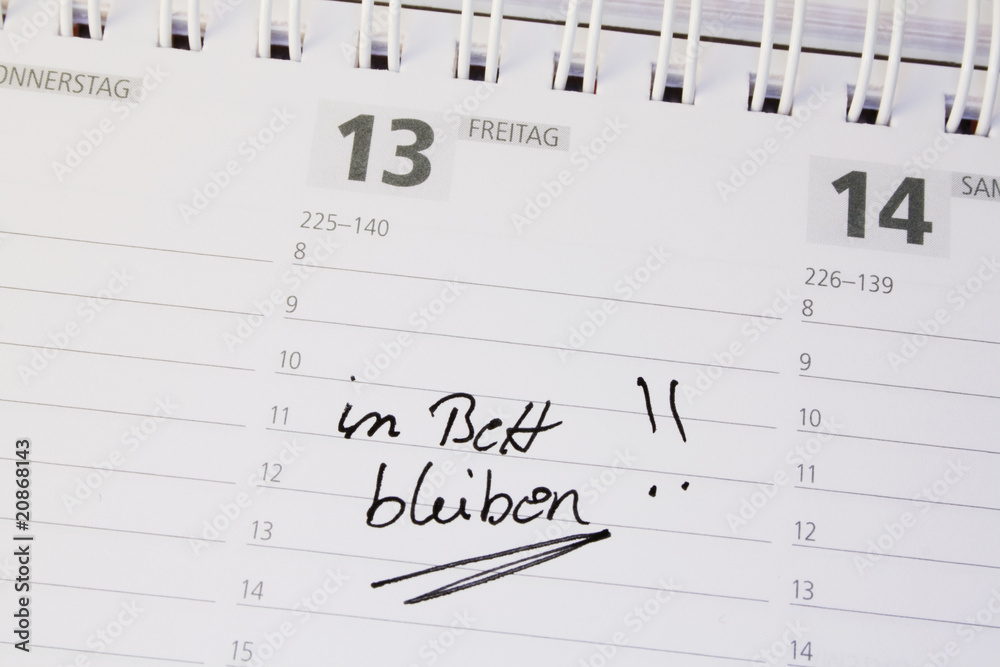 ONNERSTAG
13 FREITAG
225–140
8
9
10
11
12
13
14
15
in Bett !!
bleiben
14 SAM
226–139
8
9
10
11
12
13
14
Adobe Stock | #20868143
Adobe Stock